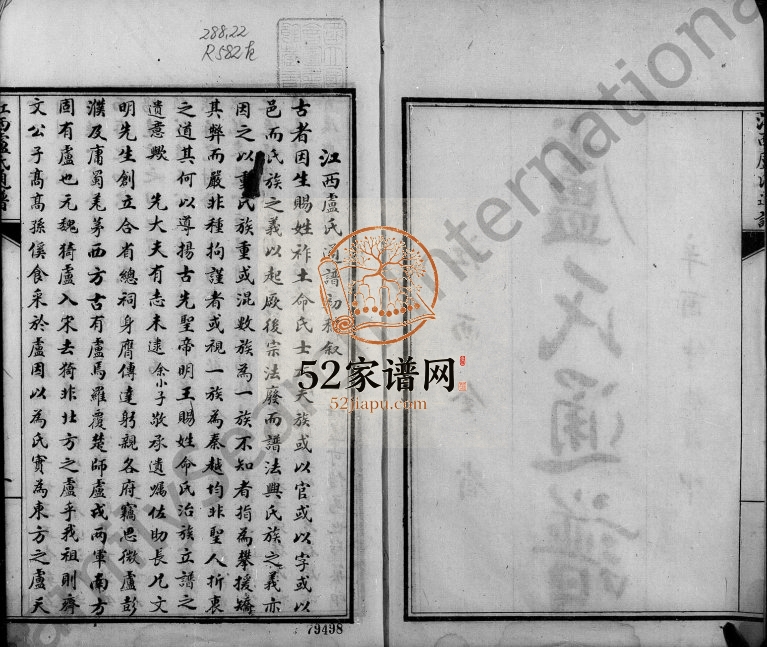 288.22
R582
江西盧氏通譜初稿叙
古者因生賜姓祚土命氏士大夫族或以官或以字或以
邑而氏族之義以起厥後宗法廢而譜法興氏族之義亦
因之以重氏族重或混數族為一族不知者指為攀援矯
其弊而嚴非種拘謹者或視一族為秦越均非聖人折衷
之道其何以尊揚古先聖帝明王賜姓命氏治族立譜之
遺意歟 先大夫有志未逮余小子敬承遺囑佐助長兄文
明先生創立合省總祠身膺傳達躬親各府竊思微盧彭
濮及庸蜀羌茅西方古有盧馬羅覆楚師盧戎兩軍南方
固有盧也元魏猗盧入宋去猗非北方之盧乎我祖則齊
文公子高高孫傒食采於盧因以為氏實為東方之盧天
江西盧氏通譜
79498
盧氏通譜
52家谱网
52jiapu.com
International